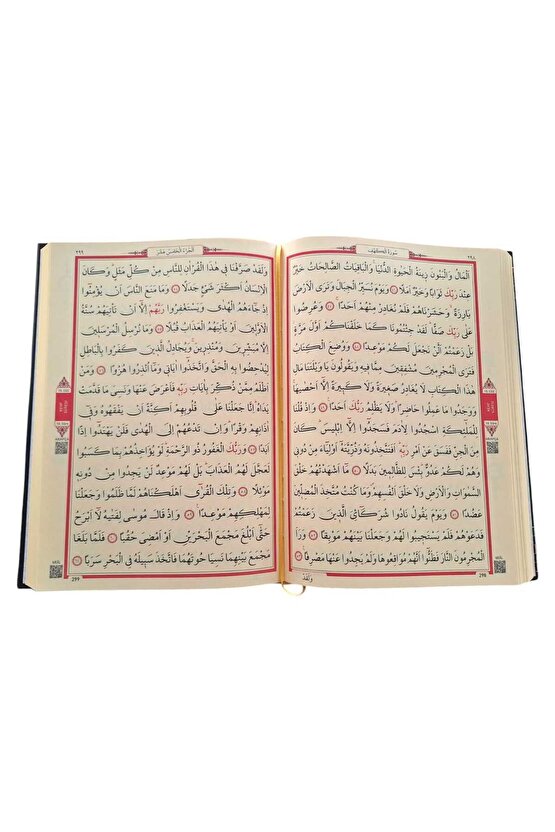 ٢٩٨
سُورَةُ الْكَهْفِ
اَلْمَالُ وَالْبَنُونَ زِينَةُ الْحَيٰوةِ الدُّنْيَا وَالْبَاقِيَاتُ الصَّالِحَاتُ خَيْرٌ
عِنْدَ رَبِّكَ ثَوَابًا وَخَيْرٌ اَمَلًا ﴿٤٦﴾ وَيَوْمَ نُسَيِّرُ الْجِبَالَ وَتَرَى الْاَرْضَ
بَارِزَةً وَحَشَرْنَاهُمْ فَلَمْ نُغَادِرْ مِنْهُمْ اَحَدًا ﴿٤٧﴾ وَعُرِضُوا
عَلٰى رَبِّكَ صَفًّا لَقَدْ جِئْتُمُونَا كَمَا خَلَقْنَاكُمْ اَوَّلَ مَرَّةٍ
بَلْ زَعَمْتُمْ اَلَّنْ نَجْعَلَ لَكُمْ مَوْعِدًا ﴿٤٨﴾ وَوُضِعَ الْكِتَابُ
فَتَرَى الْمُجْرِمِينَ مُشْفِقِينَ مِمَّا فِيهِ وَيَقُولُونَ يَا وَيْلَتَنَا مَالِ
هٰذَا الْكِتَابِ لَا يُغَادِرُ صَغِيرَةً وَلَا كَبِيرَةً اِلَّا اَحْصٰيهَا
وَوَجَدُوا مَا عَمِلُوا حَاضِرًا وَلَا يَظْلِمُ رَبُّكَ اَحَدًا ﴿٤٩﴾ وَاِذْ قُلْنَا
لِلْمَلٰئِكَةِ اسْجُدُوا لِاٰدَمَ فَسَجَدُوا اِلَّا اِبْلِيسَ كَانَ
مِنَ الْجِنِّ فَفَسَقَ عَنْ اَمْرِ رَبِّهِ اَفَتَتَّخِذُونَهُ وَذُرِّيَّتَهُ اَوْلِيَاءَ مِنْ دُونِي
وَهُمْ لَكُمْ عَدُوٌّ بِئْسَ لِلظَّالِمِينَ بَدَلًا ﴿٥٠﴾ مَا اَشْهَدْتُهُمْ خَلْقَ
السَّمٰوَاتِ وَالْاَرْضِ وَلَا خَلْقَ اَنْفُسِهِمْ وَمَا كُنْتُ مُتَّخِذَ الْمُضِلِّينَ
عَضُدًا ﴿٥١﴾ وَيَوْمَ يَقُولُ نَادُوا شُرَكَائِيَ الَّذِينَ زَعَمْتُمْ
فَدَعَوْهُمْ فَلَمْ يَسْتَجِيبُوا لَهُمْ وَجَعَلْنَا بَيْنَهُمْ مَوْبِقًا ﴿٥٢﴾ وَرَاَ
الْمُجْرِمُونَ النَّارَ فَظَنُّوا اَنَّهُمْ مُوَاقِعُوهَا وَلَمْ يَجِدُوا عَنْهَا مَصْرِفًا ﴿٥٣﴾
298
وَلَقَدْ
٢٩٩
اَلْجُزْءُ الْخَامِسَ عَشَرَ
وَلَقَدْ صَرَّفْنَا فِي هٰذَا الْقُرْاٰنِ لِلنَّاسِ مِنْ كُلِّ مَثَلٍ وَكَانَ
الْاِنْسَانُ اَكْثَرَ شَيْءٍ جَدَلًا ﴿٥٤﴾ وَمَا مَنَعَ النَّاسَ اَنْ يُؤْمِنُوا
اِذْ جَاءَهُمُ الْهُدٰى وَيَسْتَغْفِرُوا رَبَّهُمْ اِلَّا اَنْ تَأْتِيَهُمْ سُنَّةُ
الْاَوَّلِينَ اَوْ يَأْتِيَهُمُ الْعَذَابُ قُبُلًا ﴿٥٥﴾ وَمَا نُرْسِلُ الْمُرْسَلِينَ
اِلَّا مُبَشِّرِينَ وَمُنْذِرِينَ وَيُجَادِلُ الَّذِينَ كَفَرُوا بِالْبَاطِلِ
لِيُدْحِضُوا بِهِ الْحَقَّ وَاتَّخَذُوا اٰيَاتِي وَمَا اُنْذِرُوا هُزُوًا ﴿٥٦﴾ وَمَنْ
اَظْلَمُ مِمَّنْ ذُكِّرَ بِاٰيَاتِ رَبِّهِ فَاَعْرَضَ عَنْهَا وَنَسِيَ مَا قَدَّمَتْ
يَدَاهُ اِنَّا جَعَلْنَا عَلٰى قُلُوبِهِمْ اَكِنَّةً اَنْ يَفْقَهُوهُ وَفِي
اٰذَانِهِمْ وَقْرًا وَاِنْ تَدْعُهُمْ اِلَى الْهُدٰى فَلَنْ يَهْتَدُوا اِذًا
اَبَدًا ﴿٥٧﴾ وَرَبُّكَ الْغَفُورُ ذُو الرَّحْمَةِ لَوْ يُؤَاخِذُهُمْ بِمَا كَسَبُوا
لَعَجَّلَ لَهُمُ الْعَذَابَ بَلْ لَهُمْ مَوْعِدٌ لَنْ يَجِدُوا مِنْ دُونِهِ
مَوْئِلًا ﴿٥٨﴾ وَتِلْكَ الْقُرٰى اَهْلَكْنَاهُمْ لَمَّا ظَلَمُوا وَجَعَلْنَا
لِمَهْلِكِهِمْ مَوْعِدًا ﴿٥٩﴾ وَاِذْ قَالَ مُوسٰى لِفَتٰيهُ لَا اَبْرَحُ
حَتّٰى اَبْلُغَ مَجْمَعَ الْبَحْرَيْنِ اَوْ اَمْضِيَ حُقُبًا ﴿٦٠﴾ فَلَمَّا بَلَغَا
مَجْمَعَ بَيْنِهِمَا نَسِيَا حُوتَهُمَا فَاتَّخَذَ سَبِيلَهُ فِي الْبَحْرِ سَرَبًا ﴿٦١﴾
299